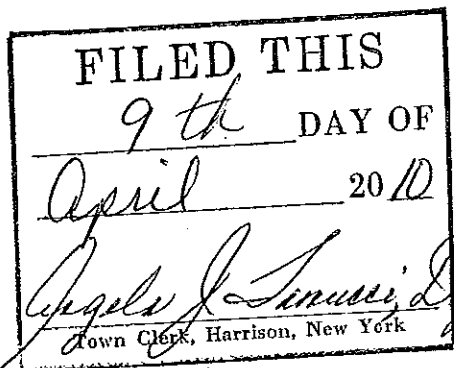 FILED THIS
9th DAY OF
April 2010
Angela J
Town Clerk, Harrison, New York